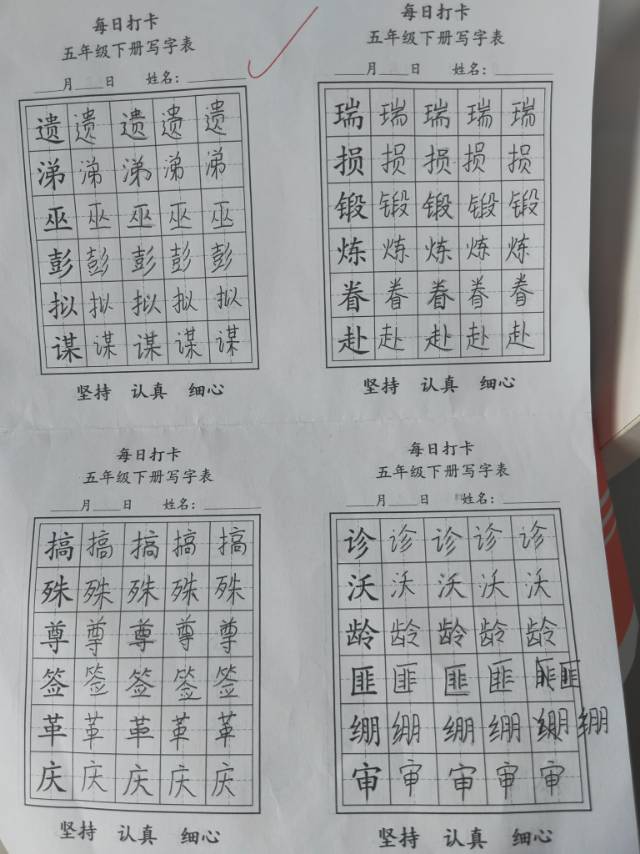 每日打卡
五年级下册写字表
___月___日 姓名：______
遗 遗 遗 遗 遗
涕 涕 涕 涕 涕
巫 巫 巫 巫 巫
彭 彭 彭 彭 彭
拟 拟 拟 拟 拟
谋 谋 谋 谋 谋
坚持 认真 细心
每日打卡
五年级下册写字表
___月___日 姓名：______
瑞 瑞 瑞 瑞 瑞
损 损 损 损 损
锻 锻 锻 锻 锻
炼 炼 炼 炼 炼
眷 眷 眷 眷 眷
赴 赴 赴 赴 赴
坚持 认真 细心
每日打卡
五年级下册写字表
___月___日 姓名：______
搞 搞 搞 搞 搞
殊 殊 殊 殊 殊
尊 尊 尊 尊 尊
签 签 签 签 签
革 革 革 革 革
庆 庆 庆 庆 庆
坚持 认真 细心
每日打卡
五年级下册写字表
___月___日 姓名：______
诊 诊 诊 诊 诊
沃 沃 沃 沃 沃
龄 龄 龄 龄 龄
匪 匪 匪 匪 匪
绷 绷 绷 绷 绷 绷
审 审 审 审 审
坚持 认真 细心